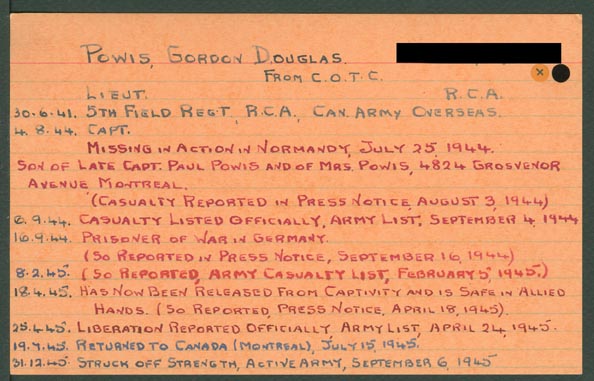 POWIS, GORDON DOUGLAS.
FROM C.O.T.C.
LIEUT. R.C.A.
30.6.41. 5TH FIELD REGT, R.C.A., CAN. ARMY OVERSEAS.
4.8.44. CAPT.
MISSING IN ACTION IN NORMANDY, JULY 25, 1944.
SON OF LATE CAPT. PAUL POWIS AND OF MRS. POWIS, 4824 GROSVENOR
AVENUE MONTREAL.
(CASUALTY REPORTED IN PRESS NOTICE AUGUST 3, 1944)
6.9.44. CASUALTY LISTED OFFICIALLY, ARMY LIST, SEPTEMBER 4, 1944
16.9.44. PRISONER OF WAR IN GERMANY.
(SO REPORTED IN PRESS NOTICE, SEPTEMBER 16, 1944)
8.2.45. (SO REPORTED, ARMY CASUALTY LIST, FEBRUARY 5, 1945.)
18.4.45. HAS NOW BEEN RELEASED FROM CAPTIVITY AND IS SAFE IN ALLIED
HANDS. (SO REPORTED, PRESS NOTICE, APRIL 18, 1945).
25.4.45. LIBERATION REPORTED OFFICIALLY, ARMY LIST, APRIL 24, 1945.
19.7.45. RETURNED TO CANADA (MONTREAL), JULY 15, 1945.
31.12.45. STRUCK OFF STRENGTH, ACTIVE ARMY, SEPTEMBER 6, 1945